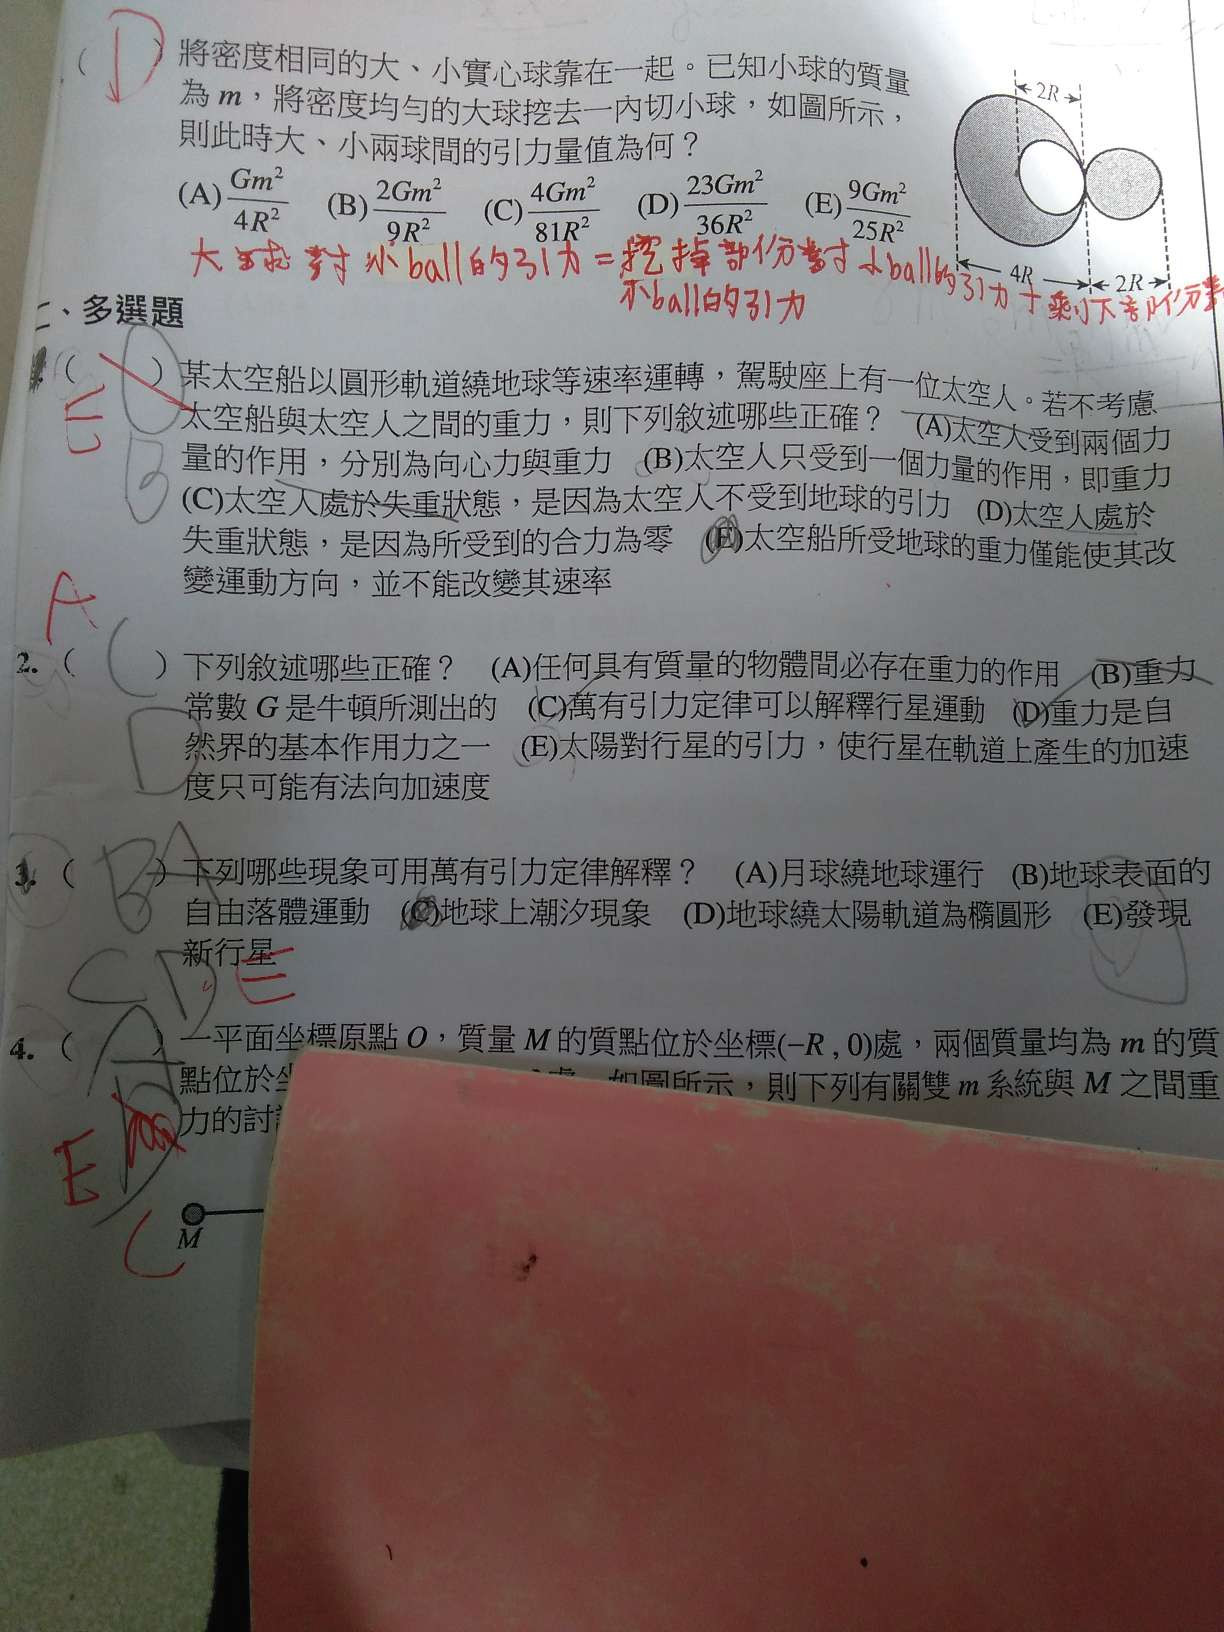 ( D ) 將密度相同的大、小實心球靠在一起。已知小球的質量
為 m，將密度均勻的大球挖去一內切小球，如圖所示，
則此時大、小兩球間的引力量值為何？
(A) Gm²/4R² (B) 2Gm²/9R² (C) 4Gm²/81R² (D) 23Gm²/36R² (E) 9Gm²/25R²
2R
4R
2R
大球對小ball的引力=挖掉部份對小ball的引力+剩下部份對
小ball的引力
二、多選題
( ) 某太空船以圓形軌道繞地球等速率運轉，駕駛座上有一位太空人。若不考慮
E
太空船與太空人之間的重力，則下列敘述哪些正確？ (A)太空人受到兩個力
B
量的作用，分別為向心力與重力 (B)太空人只受到一個力量的作用，即重力
(C)太空人處於失重狀態，是因為太空人不受到地球的引力 (D)太空人處於
失重狀態，是因為所受到的合力為零 (E)太空船所受地球的重力僅能使其改
變運動方向，並不能改變其速率
A
2. ( C ) 下列敘述哪些正確？ (A)任何具有質量的物體間必存在重力的作用 (B)重力
常數 G 是牛頓所測出的 (C)萬有引力定律可以解釋行星運動 (D)重力是自
D
然界的基本作用力之一 (E)太陽對行星的引力，使行星在軌道上產生的加速
度只可能有法向加速度
3. ( BA ) 下列哪些現象可用萬有引力定律解釋？ (A)月球繞地球運行 (B)地球表面的
自由落體運動 (C)地球上潮汐現象 (D)地球繞太陽軌道為橢圓形 (E)發現
新行星
CD E
4. ( A ) 一平面坐標原點 O，質量 M 的質點位於坐標(−R , 0)處，兩個質量均為 m 的質
點位於坐 處，如圖所示，則下列有關雙 m 系統與 M 之間重
力的討
E
C
M